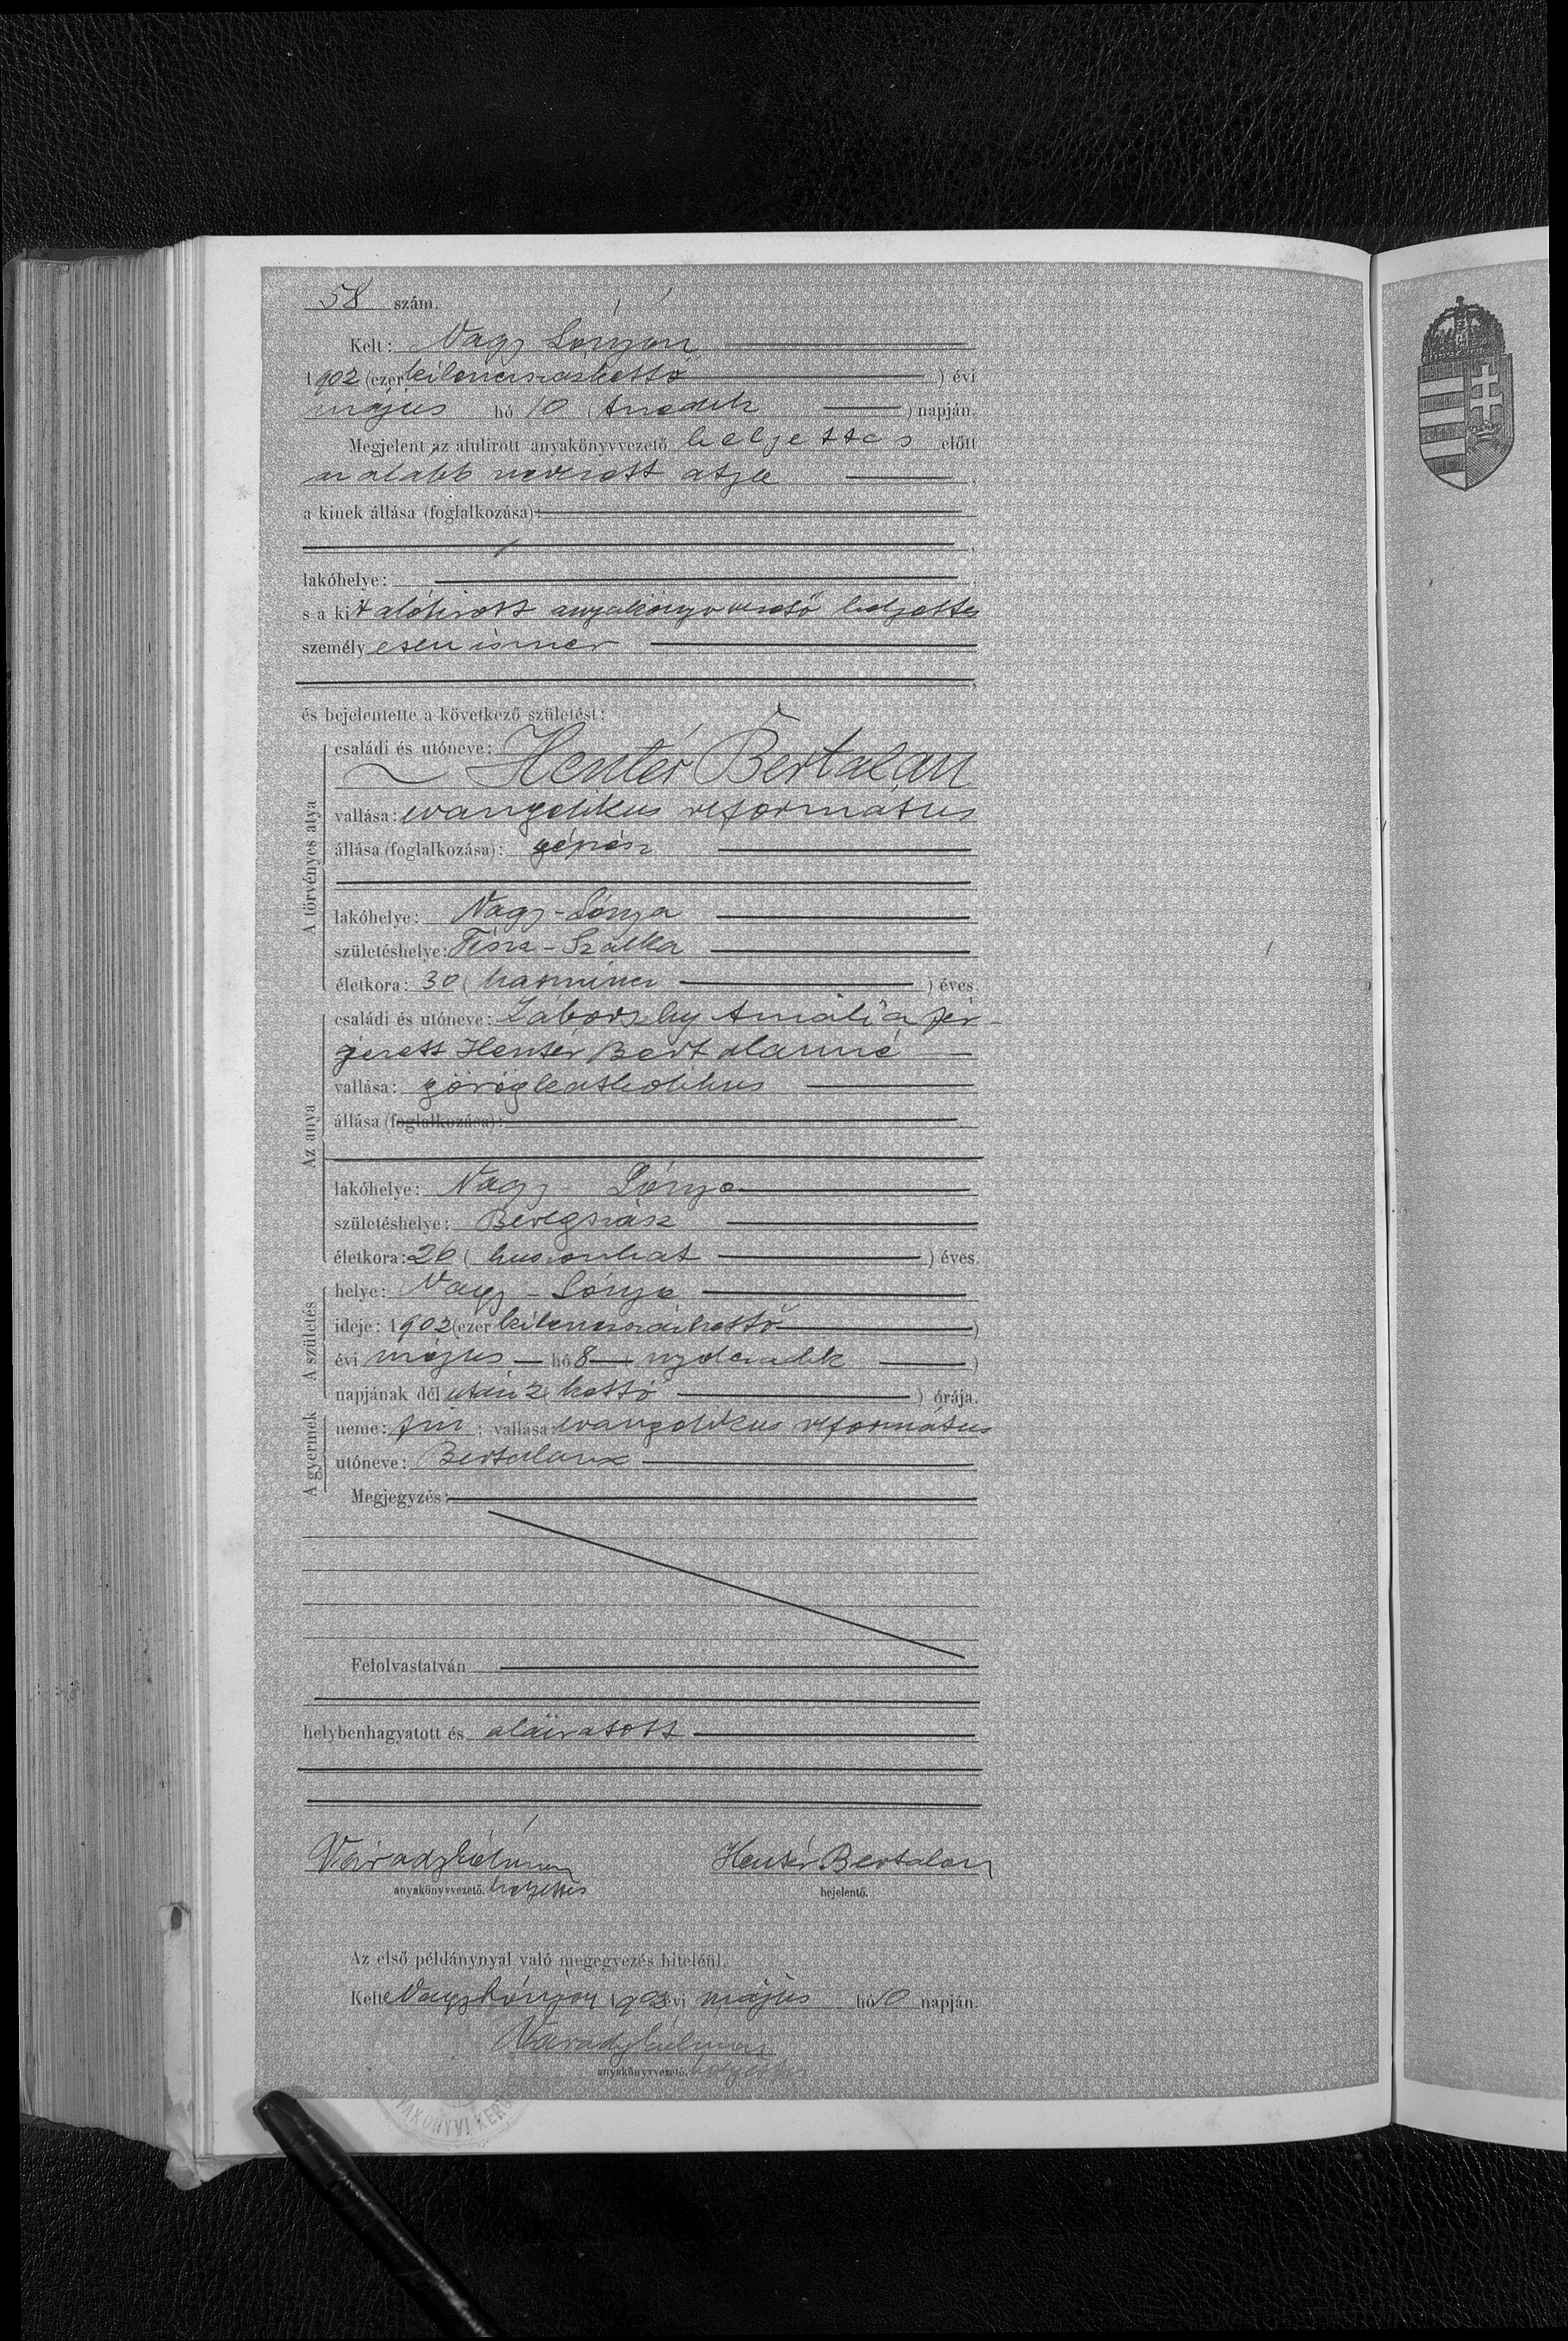 58 szám.
Kelt: Nagy Lónyán
1902 (ezer kilenczszázkettő) évi
május hó 10 (tizedik) napján.
Megjelent az alulirott anyakönyvvezető helyettes előtt
az alább nevezett atya
a kinek állása (foglalkozása):
lakóhelye:
s a kit alólirott anyakönyvvezető helyettes
személyesen ismer
és bejelentette a következő születést:
A törvényes atya
családi és utóneve:
Hentér Bertalan
vallása: evangelikus református
állása (foglalkozása): gépész
lakóhelye: Nagy-Lónya
születéshelye: Tisza-Szalka
életkora: 30 (harmincz) éves.
Az anya
családi és utóneve: Záborszky Amália fér-
jezett Hentér Bertalanné
vallása: görögkatholikus
állása (foglalkozása):
lakóhelye: Nagy-Lónya
születéshelye: Beregszász
életkora: 26 (huszonhat) éves.
A születés
helye: Nagy-Lónya
ideje: 1902 (ezer kilenczszázkettő)
évi május hó 8 (nyolczadik)
napjának dél után 2 (kettő) órája.
A gyermek
neme: fiú; vallása: evangelikus református
utóneve: Bertalan
Megjegyzés:
Felolvastatván
helybenhagyatott és aláiratott
Várady Kálmán Hentér Bertalan
anyakönyvvezető. helyettes bejelentő.
Az első példánynyal való megegyezés hiteléül.
Kelt Nagy Lónyán 1902 évi május hó 10 napján.
Várady Kálmán
anyakönyvvezető. helyettes